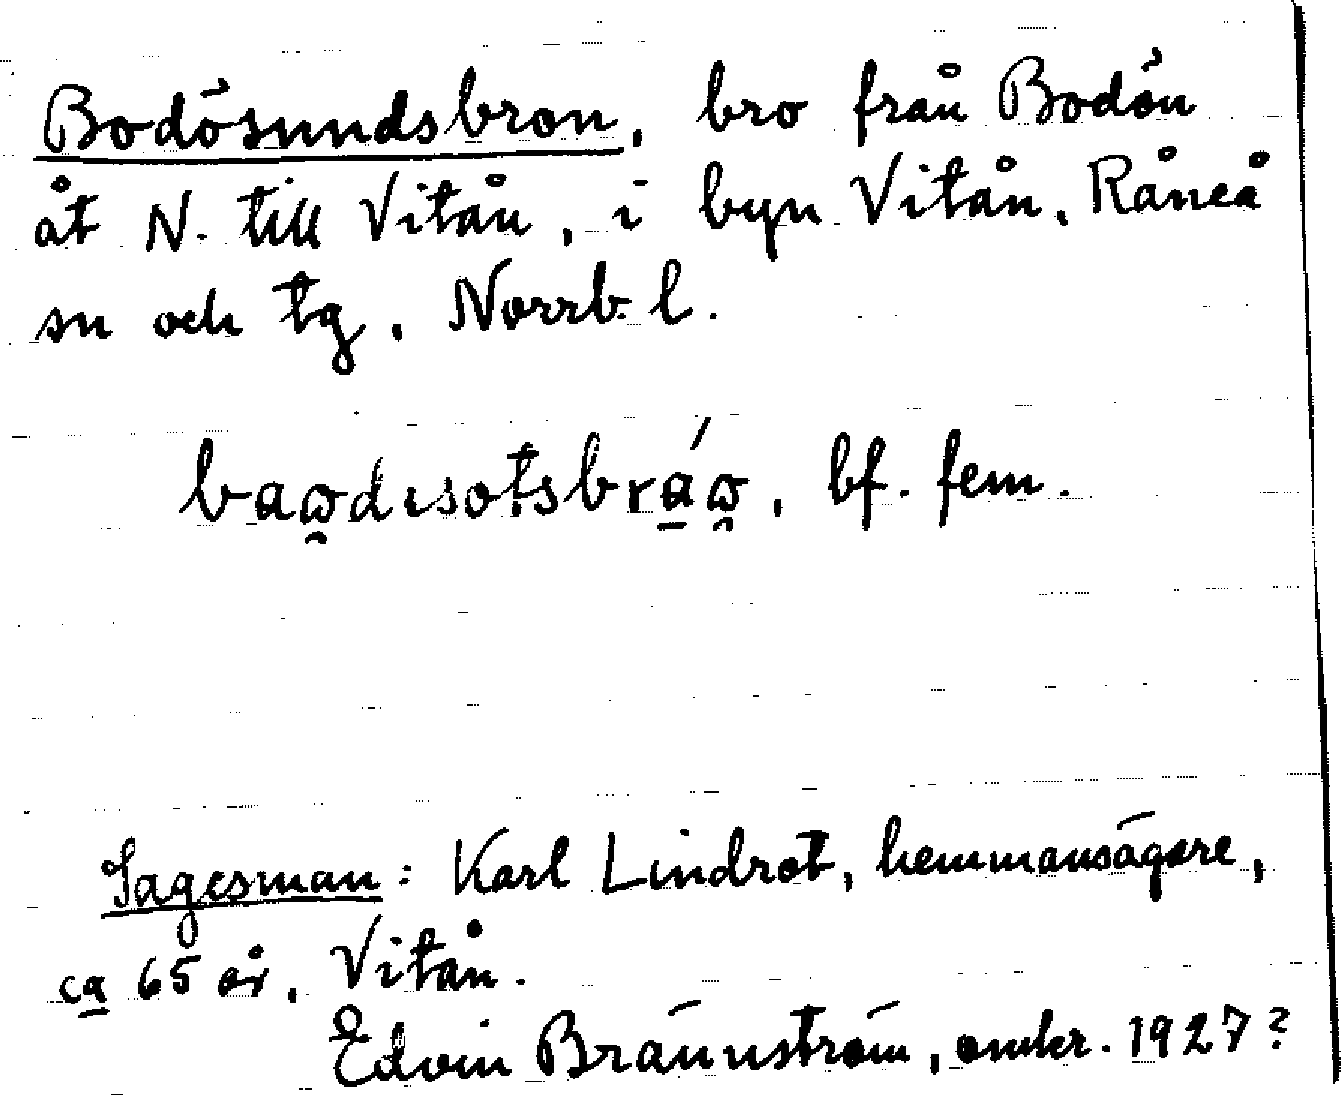 Bodösundsbron, bro från Bodön
åt N. till Vitån, i byn Vitån, Råneå
sn och tg, Norrb. l.
bf. fem.
Sagesman: Karl Lindrot, hemmansägare,
ca 65 år, Vitån.
Edvin Brännström, omkr. 1927?